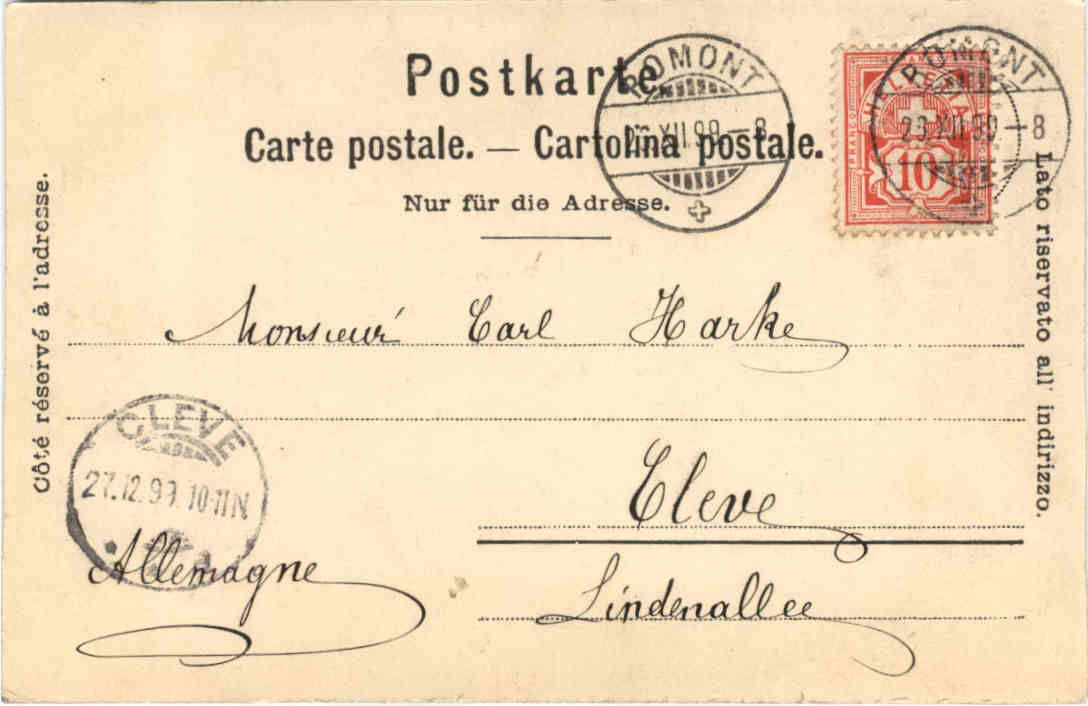 Postkarte
Carte postale. — Cartolina postale.
Nur für die Adresse.
ROMONT
XII.99–8
HELVETIA
10
ROMONT
XII.99–8
Côté réservé à l'adresse.
Lato riservato all' indirizzo.
Monsieur Carl Harke
CLEVE
27.12.99. 10-11N
Cleve
Allemagne
Lindenallee